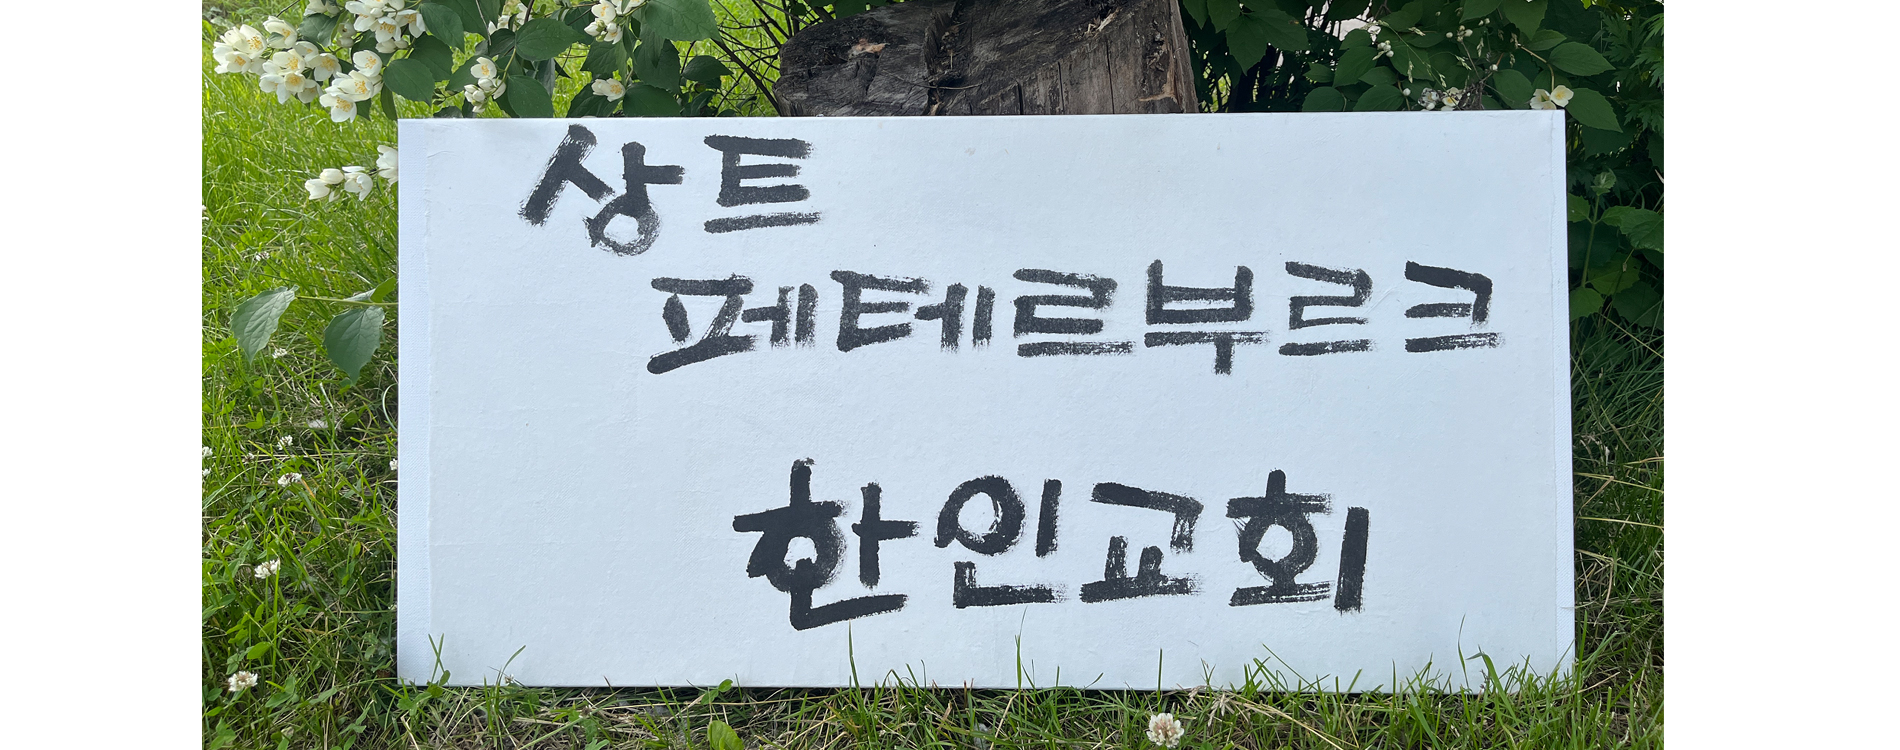 상트
페테르부르크
한인교회